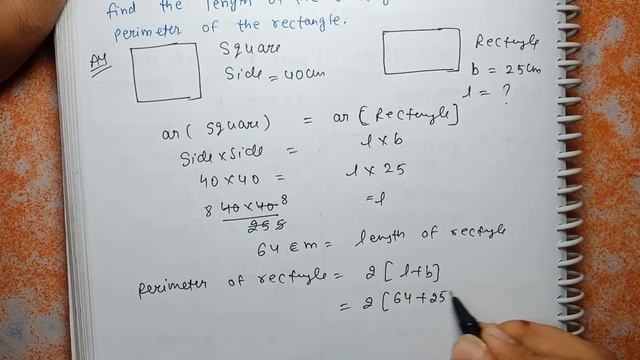 find the length of the
perimeter of the rectangle.
Square
Side = 40cm
Rectangle
b = 25cm
l = ?
ar ( Square ) = ar [ Rectangle ]
Side x Side = l x b
40 x 40 = l x 25
8 40 x 40 8 = l
25 5
64 cm = length of rectangle
perimeter of rectangle = 2 [ l + b ]
= 2 [ 64 + 25